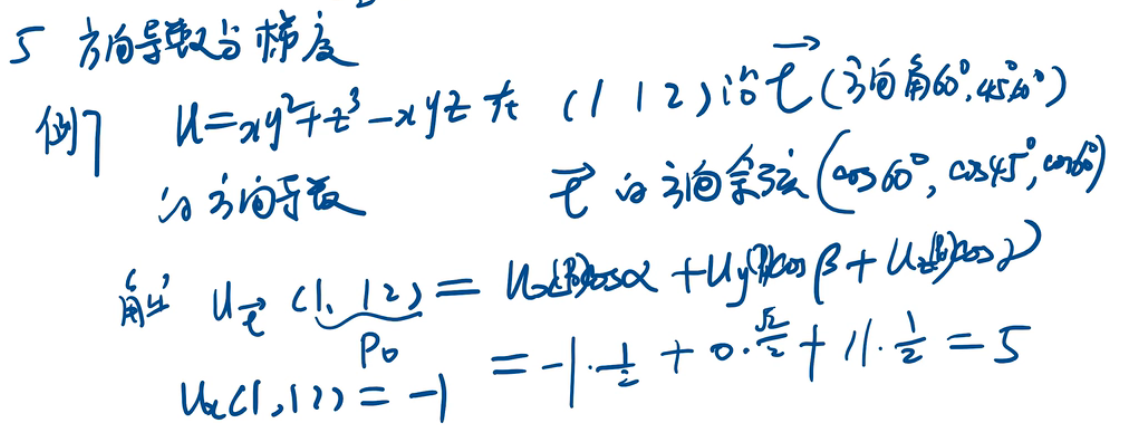 5 方向导数与梯度
例7 u=xy²+z³-xyz 在 (1 1 2)沿 \vec{l} (方向角60°,45°,60°)
的方向导数 \vec{l} 的方向余弦(cos60°, cos45°, cos60°)
解 u_{\vec{l}} (1,1 2) = u_x(P_0)cosα + u_y(P_0)cosβ + u_z(P_0)cosγ
P_0 = -1·\frac{1}{2} + 0·\frac{\sqrt{2}}{2} + 11·\frac{1}{2} = 5
u_x(1,1 2) = -1